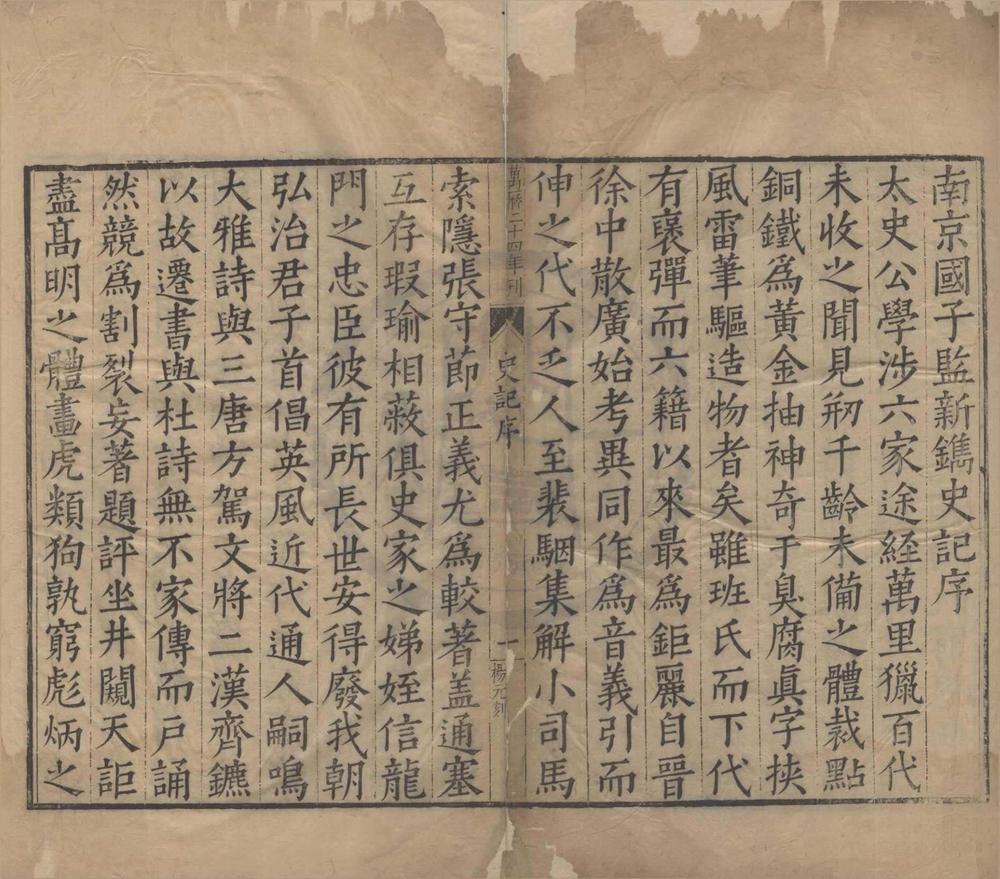 南京國子監新鐫史記序
太史公學涉六家途経萬里獵百代
未收之聞見剏千齡未備之體裁點
銅鐵為黃金抽神奇于臭腐眞字挾
風雷筆驅造物者矣雖班氏而下代
有褒彈而六籍以來最為鉅麗自晉
徐中散廣始考異同作為音義引而
伸之代不乏人至裴駰集解小司馬
萬曆二十四年刊
史記序
一
楊元刻
索隱張守節正義尤為較著盖通塞
互存瑕瑜相蔽俱史家之娣姪信龍
門之忠臣彼有所長世安得廢我朝
弘治君子首倡英風近代通人嗣鳴
大雅詩與三唐方駕文將二漢齊鑣
以故遷書與杜詩無不家傳而戶誦
然競為割裂妄著題評坐井闚天詎
盡髙明之體畫虎類狗孰窮彪炳之